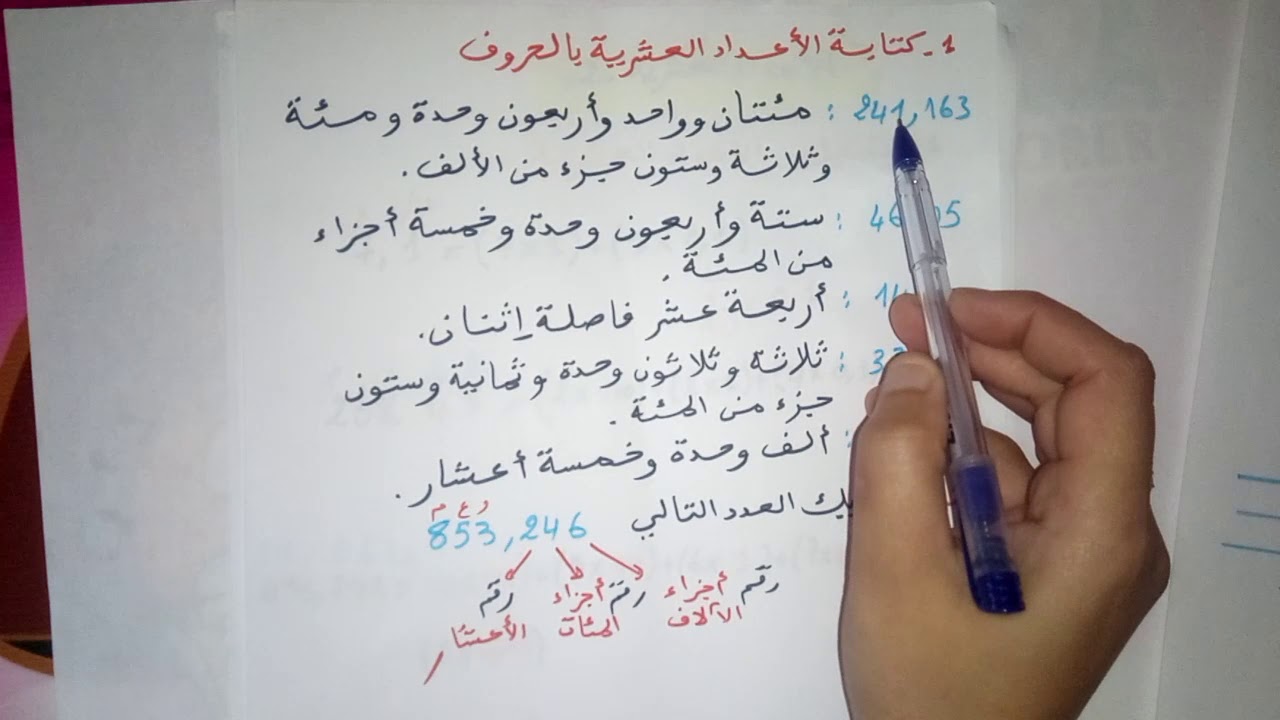 1- كتابة الأعداد العشرية بالحروف
241,163 : مئتان وواحد وأربعون وحدة ومئة
وثلاثة وستون جزء من الألف.
: ستة وأربعون وحدة وخمسة أجزاء
من المئة.
: أربعة عشر فاصلة إثنان.
: ثلاثة وثلاثون وحدة وثمانية وستون
جزء من المئة.
: ألف وحدة وخمسة أعشار.
العدد التالي
م ع و
853,246
رقم أجزاء الآلاف
رقم أجزاء المئات
رقم الأعشار